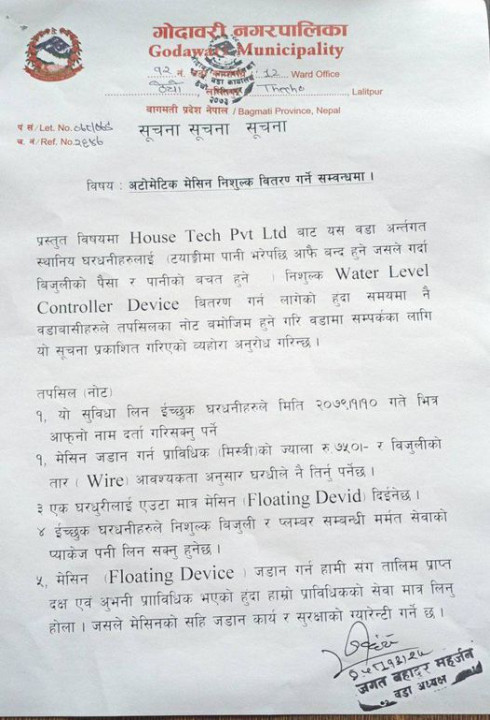 गोदावरी नगरपालिका
Godawari Municipality
१२ नं. वडा कार्यालय 12 Ward Office
ठैचो Thecho Lalitpur
बागमती प्रदेश नेपाल / Bagmati Province, Nepal
प सं/Let. No.
च. नं/Ref. No.
सूचना सूचना सूचना
विषय : अटोमेटिक मेसिन निशुल्क वितरण गर्ने सम्बन्धमा ।
प्रस्तुत विषयमा House Tech Pvt Ltd बाट यस वडा अर्न्तगत
स्थानिय घरधनीहरुलाई (टयाङ्कीमा पानी भरेपछि आफै बन्द हुने जसले गर्दा
बिजुलीको पैसा र पानीको बचत हुने । निशुल्क Water Level
Controller Device बितरण गर्न लागेको हुदा समयमा नै
वडाबासीहरुले तपसिलका नोट बमोजिम हुने गरि वडामा सम्पर्कका लागि
यो सूचना प्रकाशित गरिएको व्यहोरा अनुरोध गरिन्छ ।
तपसिल (नोट)
१, यो सुविधा लिन ईच्छुक घरधनीहरुले मिति २०७९/१/१० गते भित्र
आफ्नो नाम दर्ता गरिसक्नु पर्ने
१, मेसिन जडान गर्न प्राविधिक (मिस्त्री)को ज्याला रु.७५०।- र बिजुलीको
तार ( Wire) आवश्यकता अनुसार घरधीले नै तिर्नु पर्नेछ ।
३ एक घरधुरीलाई एउटा मात्र मेसिन (Floating Devid) दिईनेछ ।
४ ईच्छुक घरधनीहरुले निशुल्क बिजुली र प्लम्बर सम्बन्धी मर्मत सेवाको
प्याकेज पनी लिन सक्नु हुनेछ ।
५, मेसिन (Floating Device ) जडान गर्न हामी संग तालिम प्राप्त
दक्ष एवं अुभनी प्राााविधिक भएको हुदा हाम्रो प्राविधिकको सेवा मात्र लिनु
होला । जसले मेसिनको सहि जडान कार्य र सुरक्षाको ग्यारेन्टी गर्ने छ ।
जगत बहादुर महर्जन
वडा अध्यक्ष